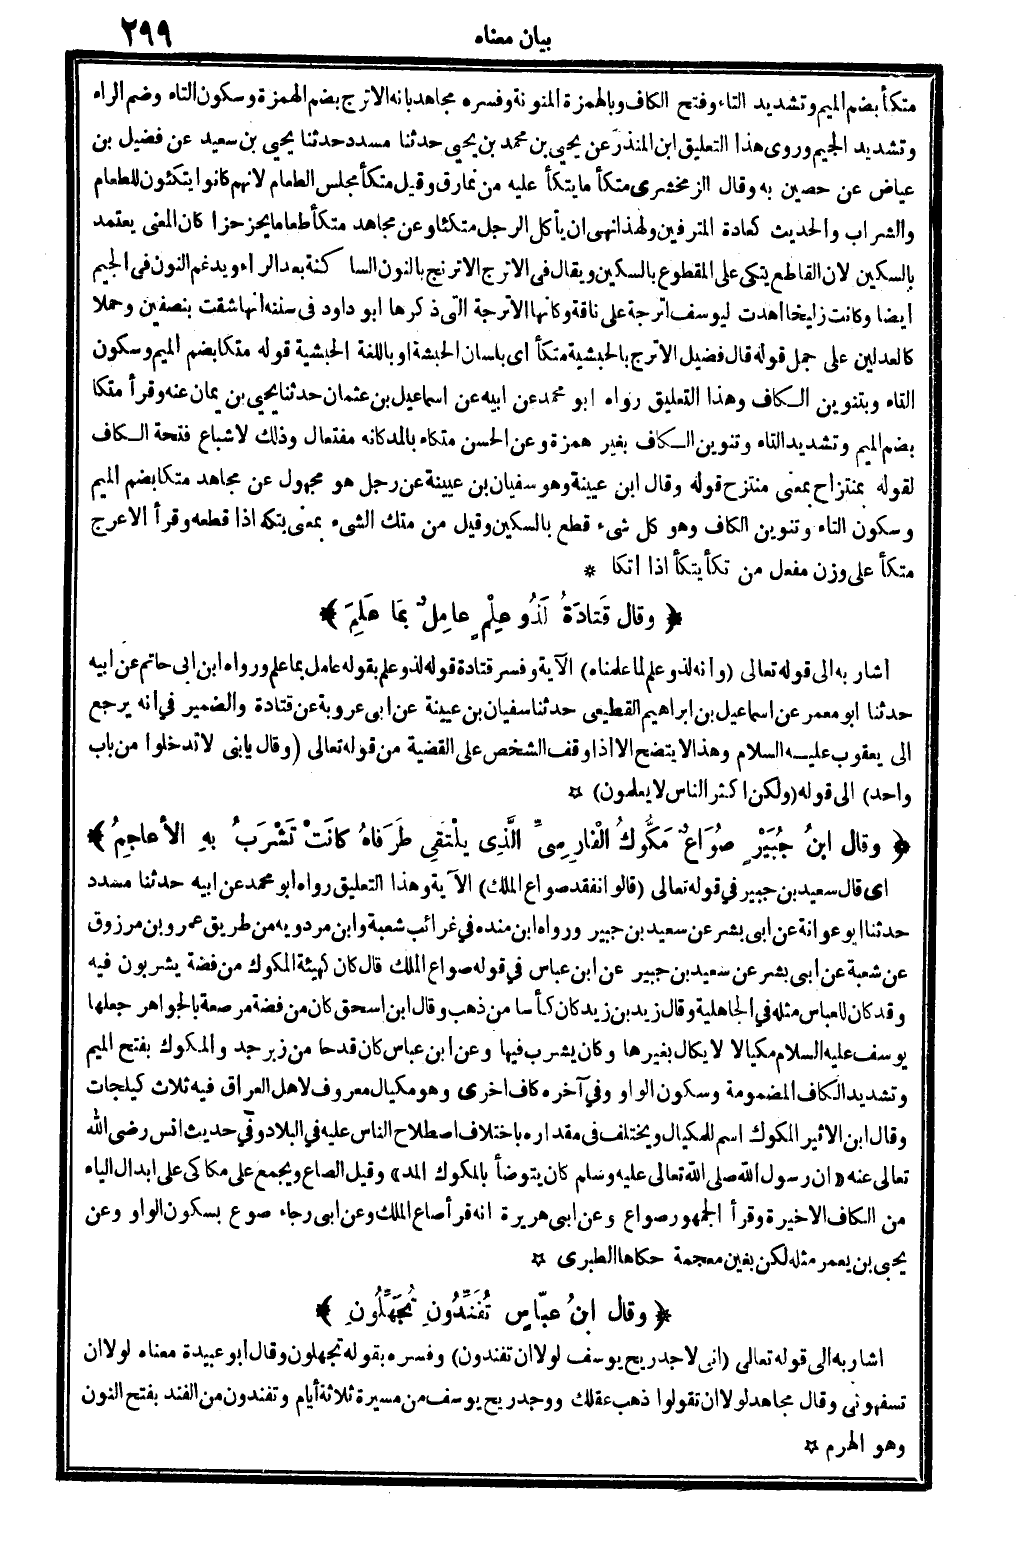 بيان معناه ٢٩٩
متكأ بضم الميم وتشديد التاء وفتح الكاف وبالهمزة المنونة وفسره مجاهد بانه الاترج بضم الهمزة وسكون التاء وضم الراء
وتشديد الجيم وروى هذا التعليق ابن المنذر عن يحيى بن محمد بن يحيى حدثنا مسدد حدثنا يحيى بن سعيد عن فضيل بن
عياض عن حصين به وقال الزمخشرى متكأ ما يتكأ عليه من نمارق وقيل متكأ مجلس الطعام لانهم كانوا يتكئون للطعام
والشراب والحديث كعادة المترفين ولهذا نهى ان يأكل الرجل متكئا وعن مجاهد متكأ طعاما يحز حزا كان المعنى يعتمد
بالسكين لان القاطع يتكى على المقطوع بالسكين ويقال فى الاترج الاترنج بالنون الساكنة بعد الراء ويدغم النون فى الجيم
أيضا وكانت زليخا أهدت ليوسف اترجة على ناقة وكانها الاترجة التى ذكرها ابو داود فى سننه انها شقت بنصفين وحملا
كالعدلين على جمل قوله قال فضيل الاترج بالحبشية متكأ اى بلسان الحبشة او باللغة الحبشية قوله متكا بضم الميم وسكون
التاء وبتنوين الكاف وهذا التعليق رواه ابو محمد عن ابيه عن اسماعيل بن عثمان حدثنا يحيى بن يمان عنه وقرأ متكا
بضم الميم وتشديد التاء وتنوين الكاف بغير همزة وعن الحسن متكاء بالمد كانه مفتعال وذلك لاشباع فتحة الكاف
لقوله بمنتزاح بمعنى منتزح قوله وقال ابن عيينة وهو سفيان بن عيينة عن رجل هو مجهول عن مجاهد متكا بضم الميم
وسكون التاء وتنوين الكاف وهو كل شىء قطع بالسكين وقيل من متك الشىء بمعنى بتكه اذا قطعه وقرأ الاعرج
متكأ على وزن مفعل من تكأ يتكأ اذا اتكا *
﴿ وقال قَتادَةُ لَذُو عِلْمٍ عامِلٌ بِمَا عَلِمَ ﴾
أشار به الى قوله تعالى (وانه لذو علم لما علمناه) الآية وفسر قتادة قوله لذو علم بقوله عامل بما علم ورواه ابن ابى حاتم عن أبيه
حدثنا ابو معمر عن اسماعيل بن ابراهيم القطيعى حدثنا سفيان بن عيينة عن ابى عروبة عن قتادة والضمير في انه يرجع
الى يعقوب عليه السلام وهذا لا يتضح الا اذا وقف الشخص على القضية من قوله تعالى (وقال يابنى لا تدخلوا من باب
واحد) الى قوله (ولكن اكثر الناس لا يعلمون) ✩
﴿ وقال ابنُ جُبَيْرٍ صُوَاعٌ مَكُّوكُ الْفارِسِىِّ الَّذِى يلْتَقِى طَرَفاهُ كانَتْ تَشْرَبُ بِهِ الأعاجِمُ ﴾
اى قال سعيد بن جبير في قوله تعالى (قالوا نفقد صواع الملك) الآية وهذا التعليق رواه ابو محمد عن ابيه حدثنا مسدد
حدثنا ابو عوانة عن ابى بشر عن سعيد بن جبير ورواه ابن منده في غرائب شعبة وابن مردويه من طريق عمرو بن مرزوق
عن شعبة عن ابى بشر عن سعيد بن جبير عن ابن عباس في قوله صواع الملك قال كان كهيئة المكوك من فضة يشربون فيه
وقد كان للعباس مثله في الجاهلية وقال زيد بن زيد كان كأسا من ذهب وقال ابن اسحق كان من فضة مرصعة بالجواهر جعلها
يوسف عليه السلام مكيالا لا يكال بغيرها وكان يشرب فيها وعن ابن عباس كان قدحا من زبرجد والمكوك بفتح الميم
وتشديد الكاف المضمومة وسكون الواو وفي آخره كاف اخرى وهو مكيال معروف لاهل العراق فيه ثلاث كيلجات
وقال ابن الاثير المكوك اسم للمكيال ويختلف فى مقداره باختلاف اصطلاح الناس عليه في البلاد وفي حديث انس رضى الله
تعالى عنه «ان رسول الله صلى الله تعالى عليه وسلم كان يتوضأ بالمكوك المد» وقيل الصاع ويجمع على مكاكى على ابدال الياء
من الكاف الاخيرة وقرأ الجمهور صواع وعن ابى هريرة انه قرأ صاع الملك وعن ابى رجاء صوع بسكون الواو وعن
يحيى بن يعمر مثله لكن بغين معجمة حكاها الطبرى ✩
﴿ وقال ابنُ عبّاسٍ تُفَنِّدُونِ تُجَهِّلُونِ ﴾
اشار به الى قوله تعالى (انى لاجد ريح يوسف لولا ان تفندون) وفسره بقوله تجهلون وقال ابو عبيدة معناه لولا ان
تسفهونى وقال مجاهد لولا ان تقولوا ذهب عقلك ووجد ريح يوسف من مسيرة ثلاثة أيام وتفندون من الفند بفتح النون
وهو الهرم ✩